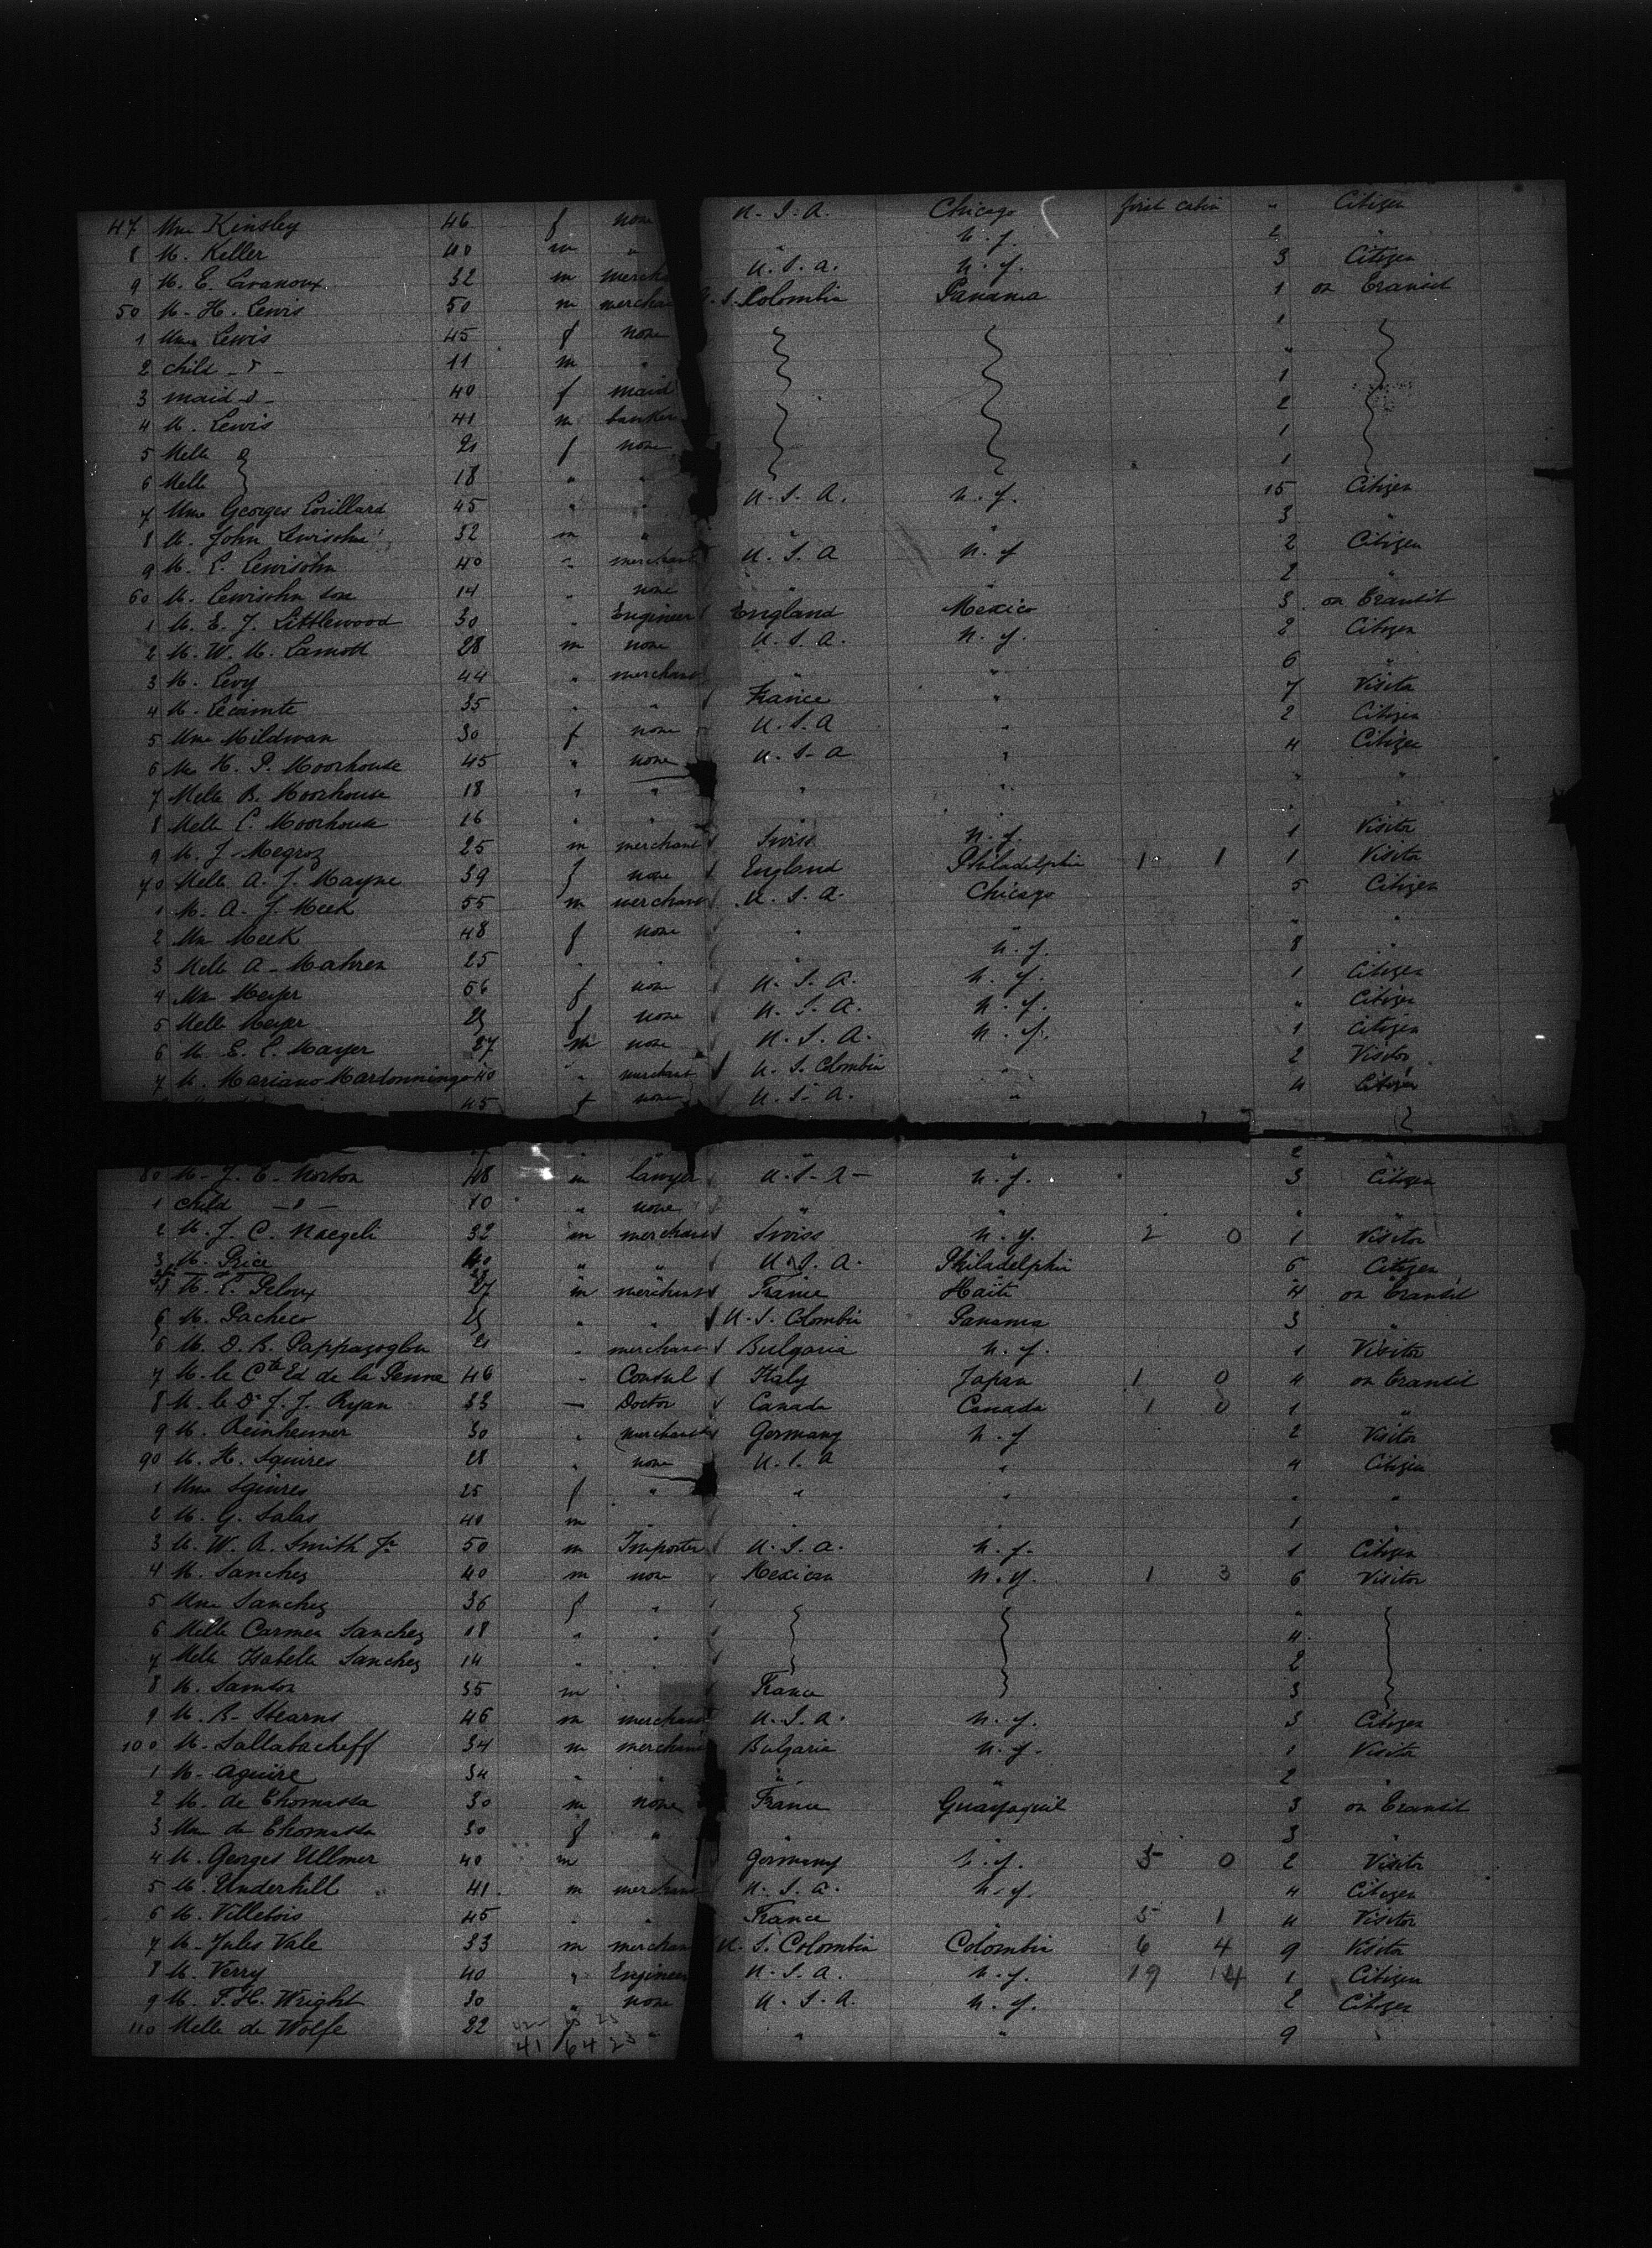 47 Mme Kinsley 46 f none U.S.A. Chicago first cabin " Citizen
8 M. Keller 40 m " " N.Y. 2 "
9 M. E. Lavanoux 32 m merch U.S.A. N.Y. 3 Citizen
50 M. H. Lewis 50 m merchan U.S. Colombia Panama 1 on Transit
1 Mme Lewis 45 f none 1
2 child - " - 11 m " "
3 maid - " - 40 f maid 1
4 M. Lewis 41 m banker 2
5 Melle 21 f none 1
6 Melle 18 " " 1
7 Mme Georges Lorillard 45 " " U.S.A. N.Y. 15 Citizen
8 M. John Lewisohn 32 m " " " 3 "
9 M. L. Lewisohn 40 " merchant U.S.A N.Y 2 Citizen
60 M. Lewisohn son 14 " none " " 2 "
1 M. E. J. Littlewood 30 " Engineer England Mexico 3 on Transit
2 M. W. M. Lamott 28 m none U.S.A. N.Y. 2 Citizen
3 M. Levy 44 " merchant " " 6 "
4 M. Lecomte 35 " " France " 7 Visitor
5 Mme Mildwan 30 f none U.S.A " 2 Citizen
6 Me H. P. Moorhouse 45 " none U.S.A " 4 Citizen
7 Melle B. Moorhouse 18 " " " " " "
8 Melle C. Moorhouse 16 " " " " " "
9 M. J. Megroz 25 m merchant Swiss N.Y. 1 Visitor
70 Melle A. J. Mayne 39 f none England Philadelphia 1 1 1 Visitor
1 M. A. J. Meek 55 m merchant U.S.A. Chicago 5 Citizen
2 Mme Meek 48 f none " " " "
3 Melle A. Mahren 25 " " " N.Y. 8 "
4 Mme Meyer 56 f none U.S.A. N.Y. 1 Citizen
5 Melle Meyer 25 f none U.S.A. N.Y. " Citizen
6 M. E. L. Mayer 27 m none U.S.A. N.Y. 1 Citizen
7 M. Mariano Mardonningo 40 " merchant U.S. Colombia " 2 Visitor
45 f none U.S.A. " 4 Citizen
2 "
80 M. J. E. Norton 48 m lawyer U.S.A - N.Y. 3 Citizen
1 child - " - 10 " none " " " "
2 M. J. C. Naegeli 32 m merchant Swiss N.Y. 2 0 1 Visitor
3 M. Price 40 " " U.S.A. Philadelphia 6 Citizen
4 M. E. Peloux 27 m merchant France Haïti 4 on Transit
5 M. Pacheco 25 " " U.S. Colombia Panama 3 "
6 M. D. B. Pappazoglou 21 " merchant Bulgaria N.Y. 1 Visitor
7 M. le Cte Ed de la Penne 46 " Consul Italy Japan 1 0 4 on Transit
8 M. le Dr J. J. Ryan 33 — Doctor Canada Canada 1 0 1 "
9 M. Reinheimer 30 " merchant Germany N.Y 2 Visitor
90 M. H. Squires 28 " none U.S.A " 4 Citizen
1 Mme Squires 25 f " " " " "
2 M. G. Salas 40 m " " " 1 "
3 M. W. A. Smith Jr 50 m Importer U.S.A. N.Y. 1 Citizen
4 M. Sanchez 40 m none Mexican N.Y. 1 3 6 Visitor
5 Mme Sanchez 36 f " "
6 Melle Carmen Sanchez 18 " " 4
7 Melle Isabelle Sanchez 14 " " 2
8 M. Samson 35 m France 3
9 M. B. Stearns 46 m merchant U.S.A. N.Y. 3 Citizen
100 M. Sallabacheff 34 m merchant Bulgaria N.Y. 1 Visitor
1 M. Aguire 34 " " " " 2 "
2 M. de Thomassa 30 m none France Guayaquil 3 on Transit
3 Mme de Thomassa 30 f " " " 3 "
4 M. Georges Ullmer 40 m Germany N.Y. 5 0 2 Visitor
5 M. Underhill 41 m merchant U.S.A. N.Y. 4 Citizen
6 M. Villebois 45 " " France " 5 1 4 Visitor
7 M. Jules Vale 33 m merchan U.S. Colombia Colombia 6 4 9 Visitor
8 M. Verry 40 " Engineer U.S.A. N.Y. 19 14 1 Citizen
9 M. F. H. Wright 30 " none U.S.A. N.Y. 2 Citizen
110 Melle de Wolfe 22 f " " " 9 "
41 64 23